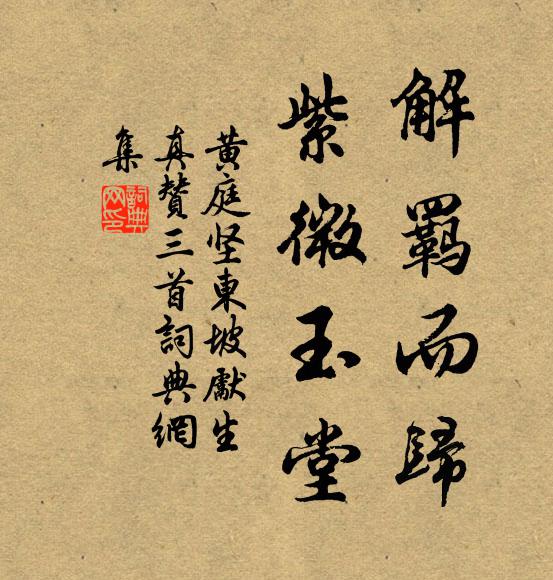 解羈而歸
紫微玉堂
黃庭坚東坡獻生
真贊三首詞典網
集
詞典
网印